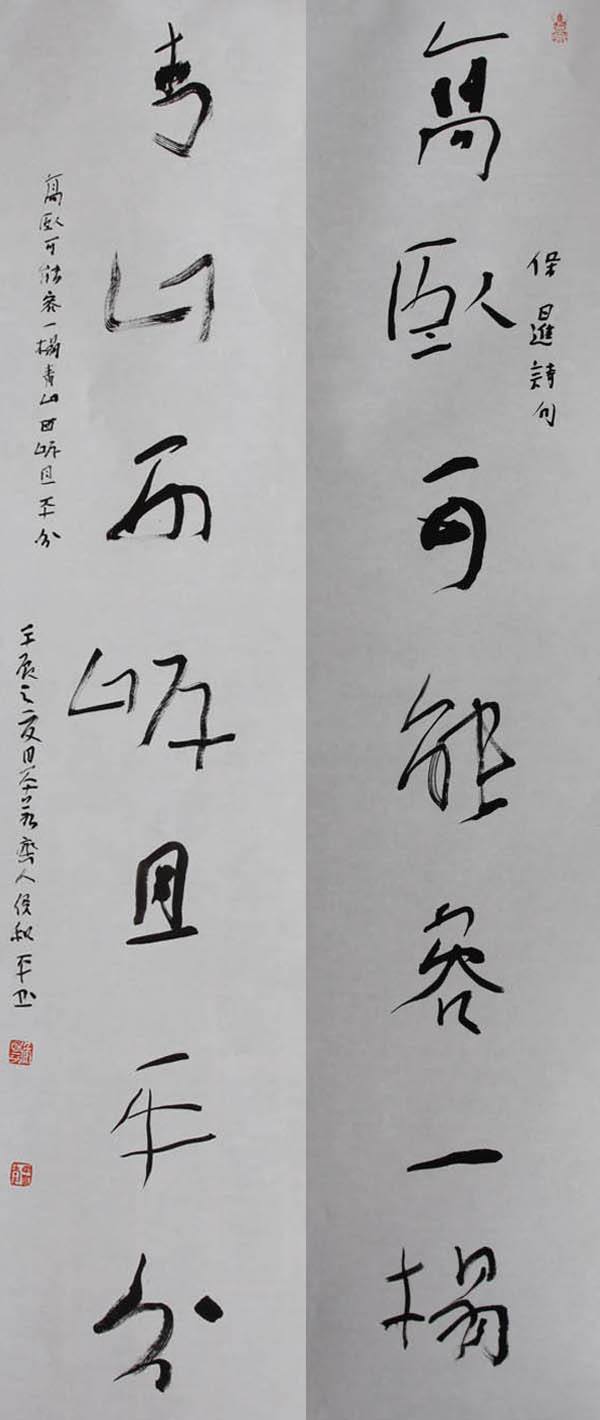 高臥可能容一榻
保暹詩句
青山两岸且平分
高臥可能容一榻青山两岸且平分
壬辰之夏日齋人侯和平书